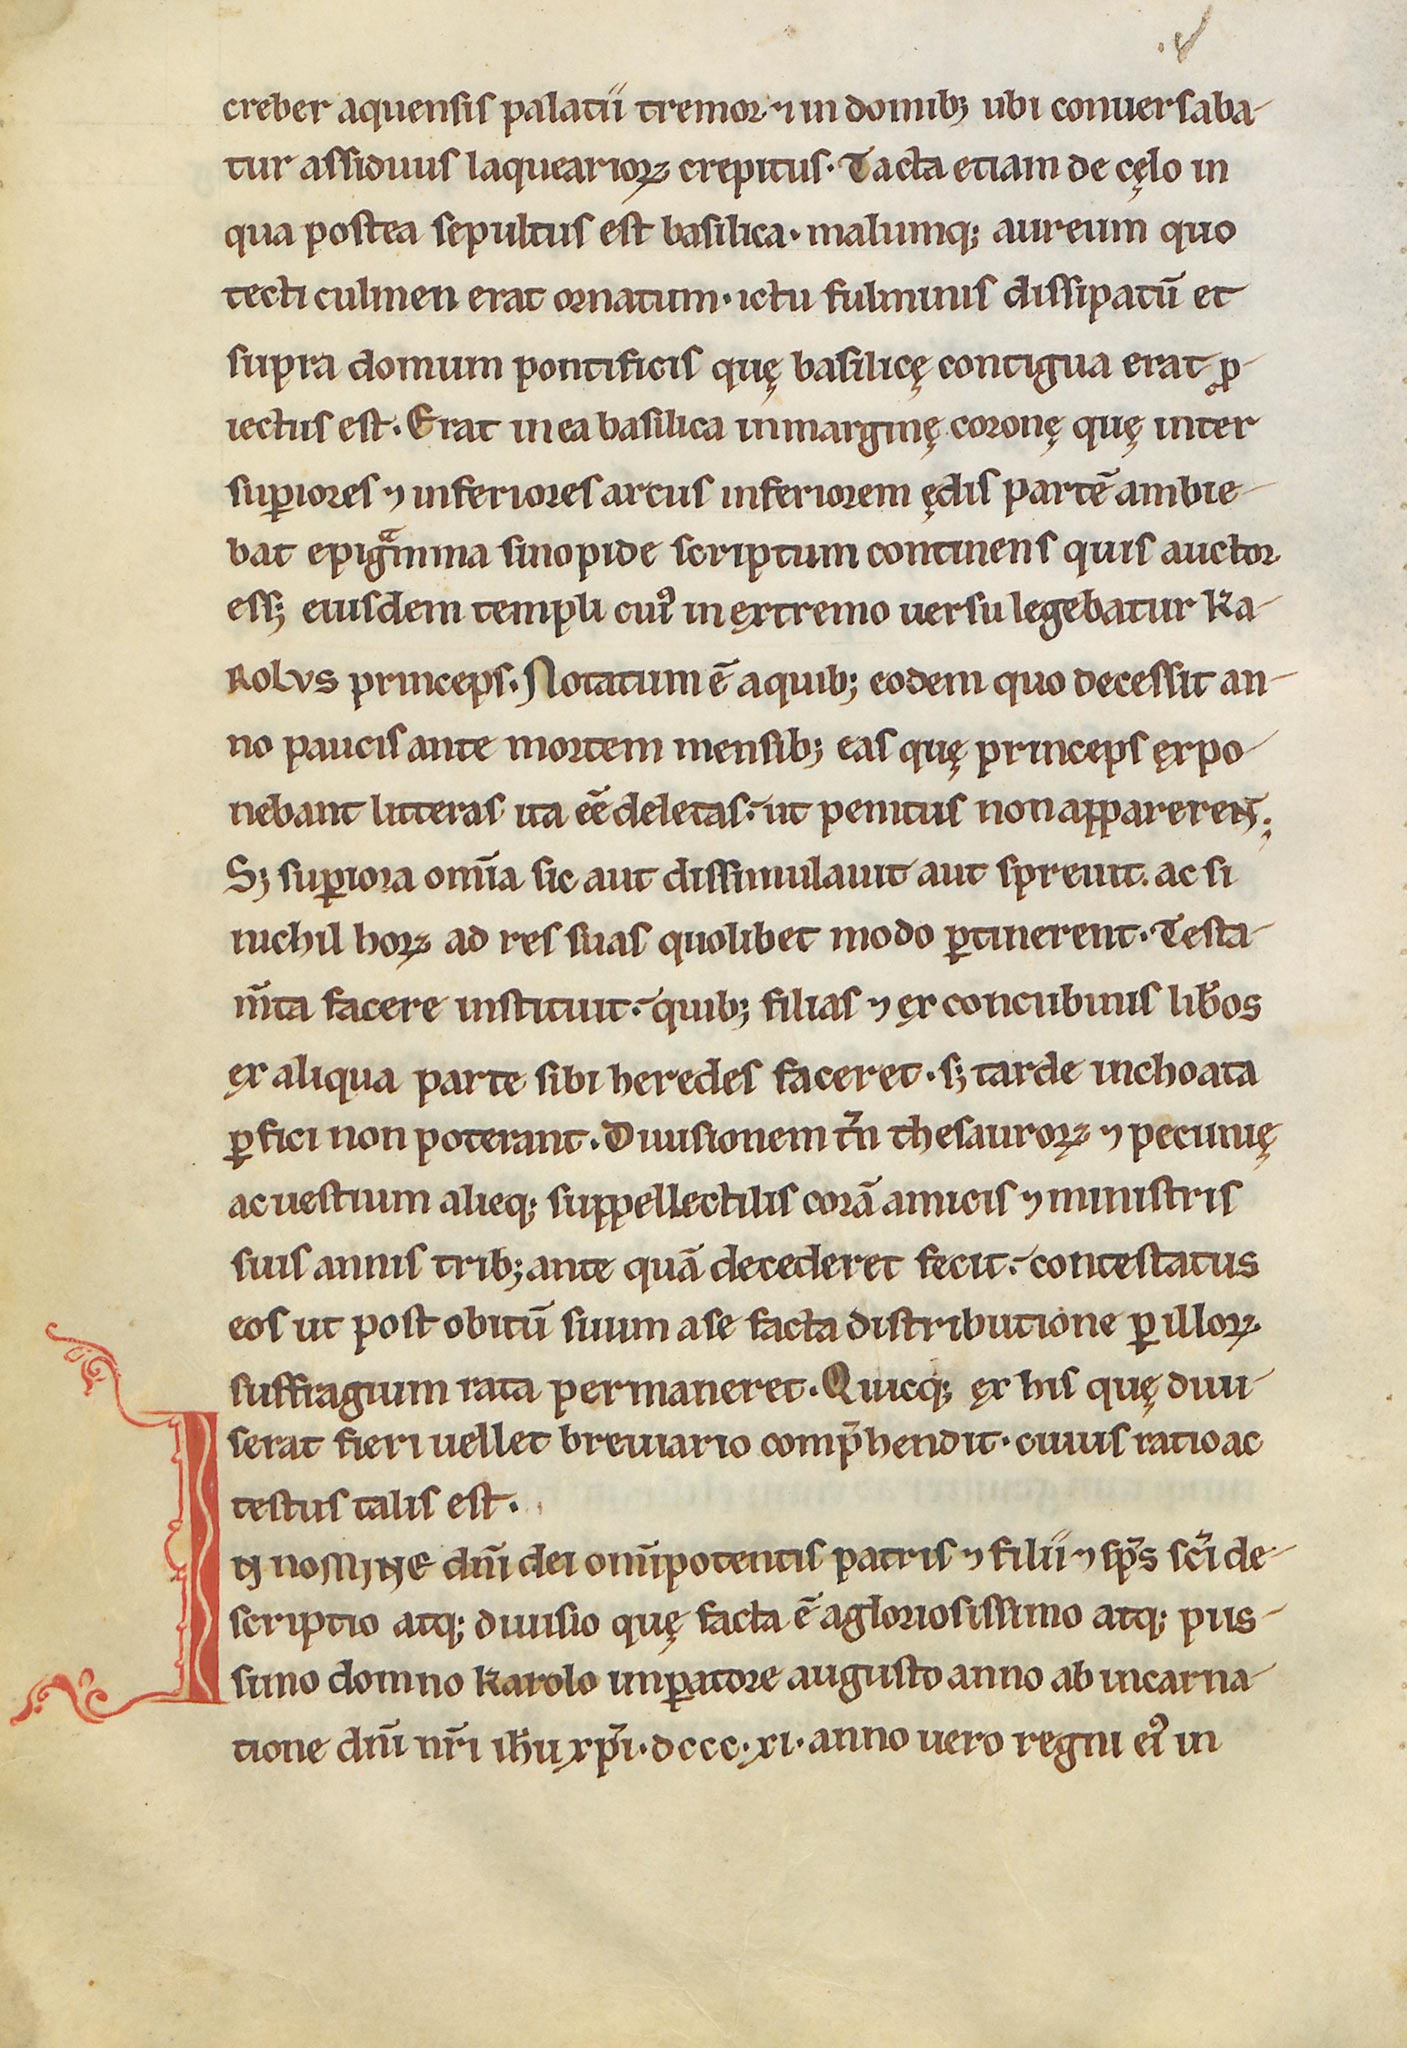 creber aquensis palatii tremor ⁊ in domib; ubi conuersaba-
tur assiduus laquearioꝝ crepitus. Tacta etiam de cęlo in
qua postea sepultus est basilica. malumq; aureum quo
tecti culmen erat ornatum. ictu fulminis dissipatū et
supra domum pontificis quę basilicę contigua erat ꝓ-
iectus est. Erat in ea basilica in marginę coronę quę inter
suꝑiores ⁊ inferiores arcus inferiorem ędis partē ambie-
bat epigͣmma sinopide scriptum continens quis auctor
ess; eiusdem templi cuiꝰ in extremo uersu legebatur Ka-
ROLVS princeps. Notatum ē a quib; eodem quo decessit an-
no paucis ante mortem mensib; eas quę princeps expo-
nebant litteras ita eē deletas. ut penitus non apparerent.
S; suꝑiora om̄ia sic aut dissimulauit aut spreuit. ac si
nichil hoꝝ ad res suas quolibet modo ꝑtinerent. Testa-
m̄ta facere instituit. quib; filias ⁊ ex concubinis lib̄os
ex aliqua parte sibi heredes faceret. s; tarde inchoata
ꝑfici non poterant. Diuisionem tn̄ thesauroꝝ ⁊ pecunię
ac uestium alieq; suppellectilis corā amicis ⁊ ministris
suis annis trib; ante quā decederet fecit. contestatus
eos ut post obitū suum a se facta distributione ꝑ illoꝝ
suffragium rata permaneret. Quicq; ex his quę diui-
serat fieri uellet breuiario comp̄hendit. cuius ratio ac
testus talis est.
IN NOMINE dn̄i dei om̄ipotentis patris ⁊ filii ⁊ sp̄s sc̄i de-
scriptio atq; diuisio quę facta ē a gloriosissimo atq; piis-
simo domno Karolo imꝑatore augusto anno ab incarna-
tione dn̄i nr̄i ih̄u xp̄i. dccc. xi. anno uero regni eiꝰ in